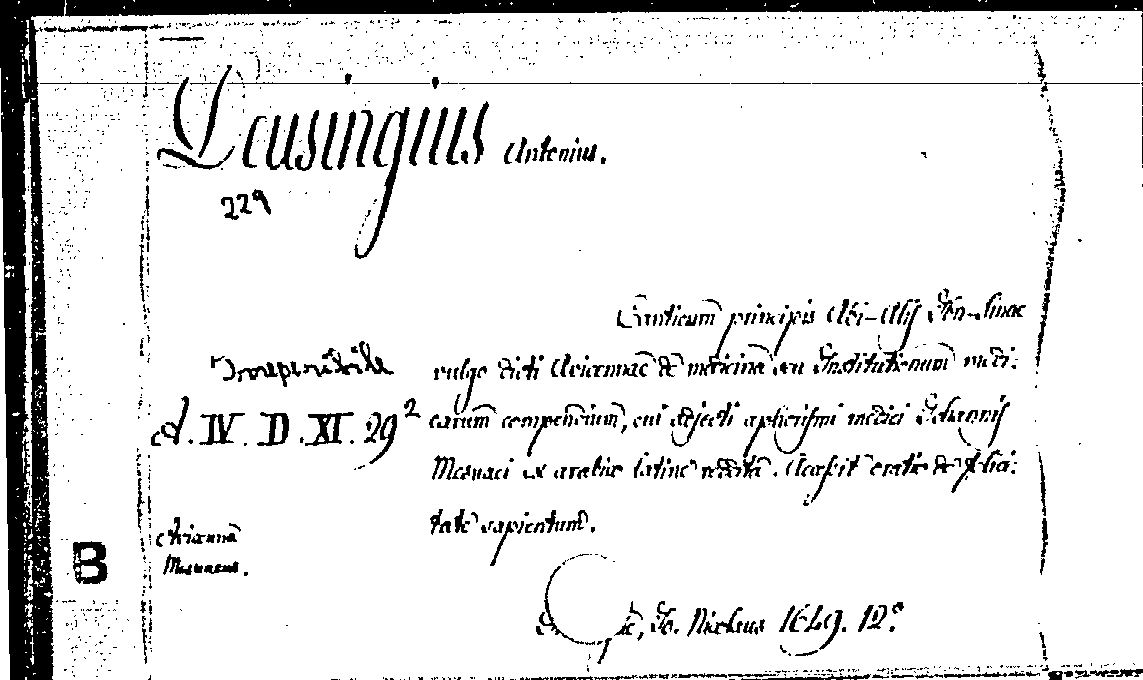 Deusingius Antonius.
229
Canticum principis Abi-Alis Ibn-Sinae
Irreperibile vulgo dicti Avicennae de medicina seu Institutionum medi:
A. IV. D. XI. 29² carum compendium, cui adjecti aphorismi medici Johannis
Mesuaei ex arabic latine reddita. Accessit oratio de felici:
tate sapientum.
Avicenna
B
Mesuaeus.
Jo. Nicolaus 1649. 12°